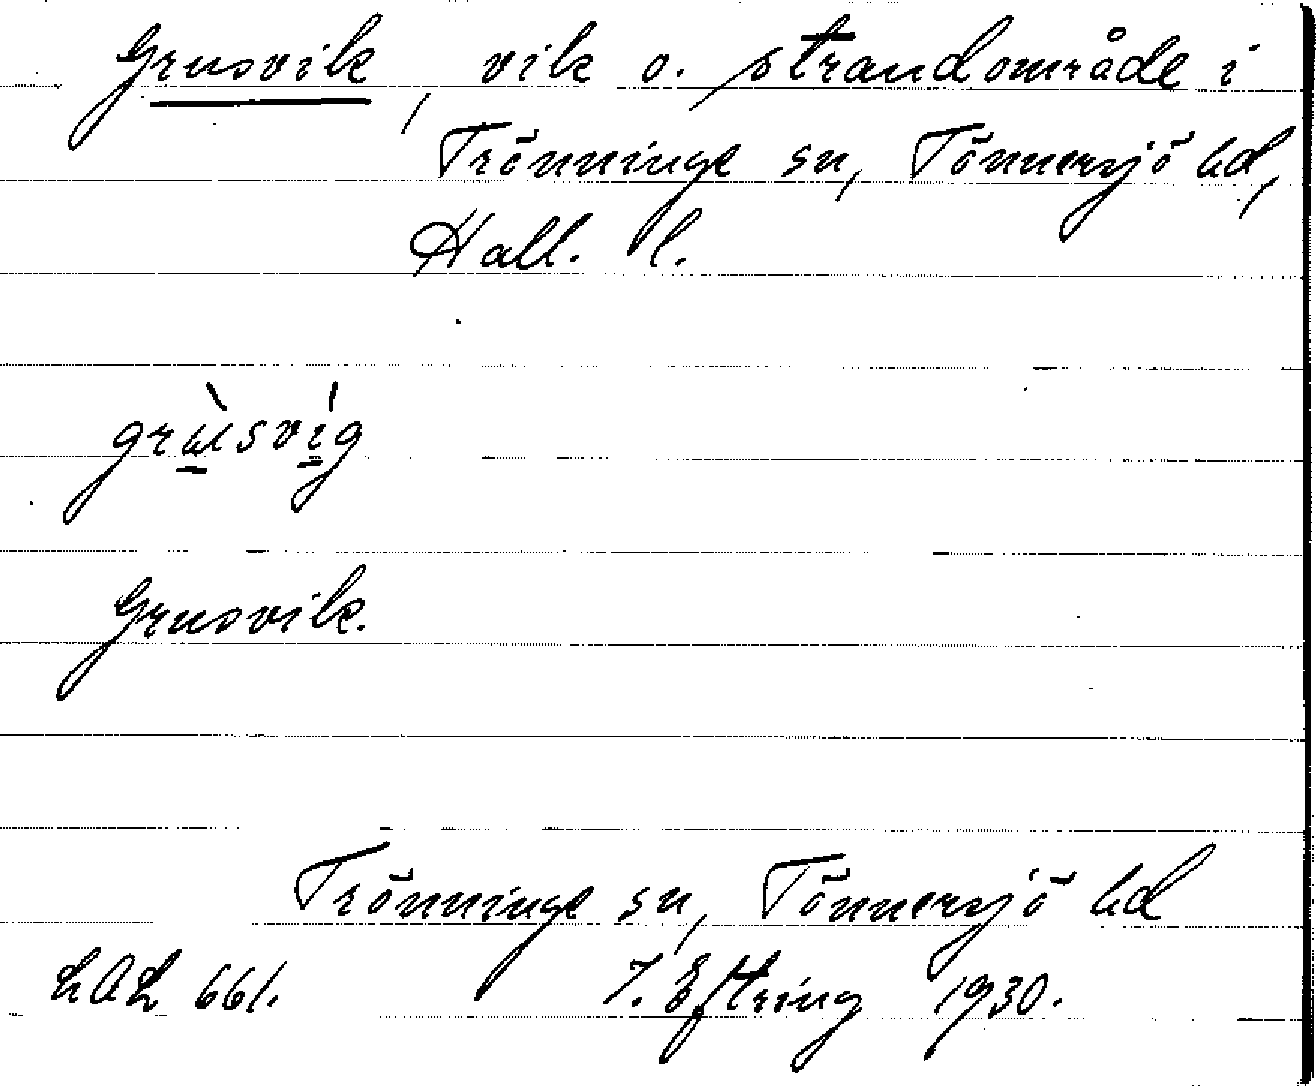 Grusvik, vik o. strandområde i
Trönninge sn, Tönnersjö hd,
Hall. l.
grùsvíg
Grusvik.
Trönninge sn, Tönnersjö hd
LAL 661. J. Eftring 1930.